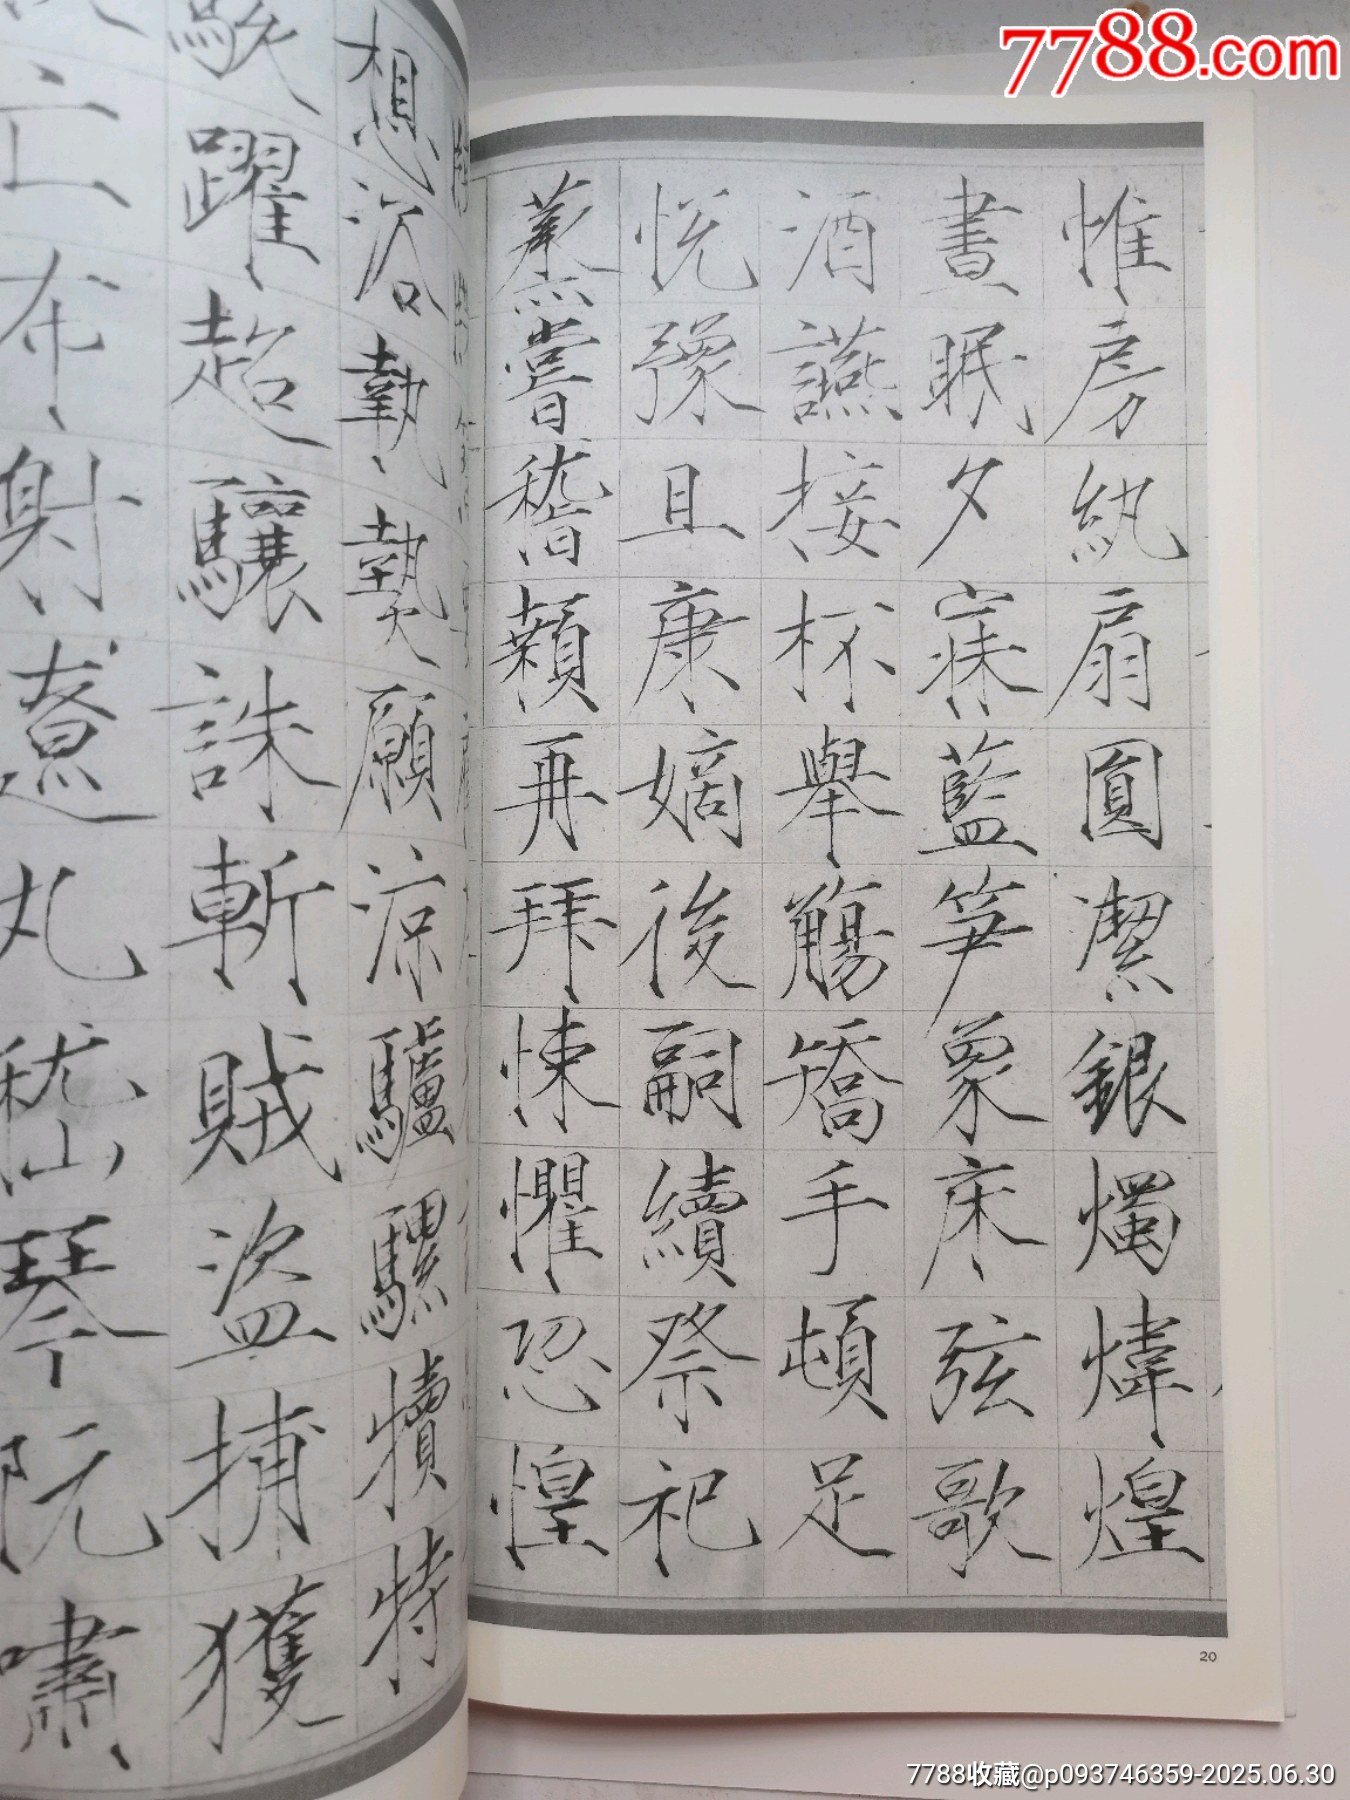 7788.com
惟房紈扇圓潔銀燭煒煌
晝眠夕寐藍笋象床弦歌
酒讌接杯舉觴矯手頓足
悅豫且康嫡後嗣續祭祀
蒸嘗稽顙再拜悚懼恐惶
想浴執熱願涼驢騾犢特
駭躍超驤誅斬賊盜捕獲
亡布射遼丸嵇琴阮嘯
20
7788收藏@p093746359-2025.06.30